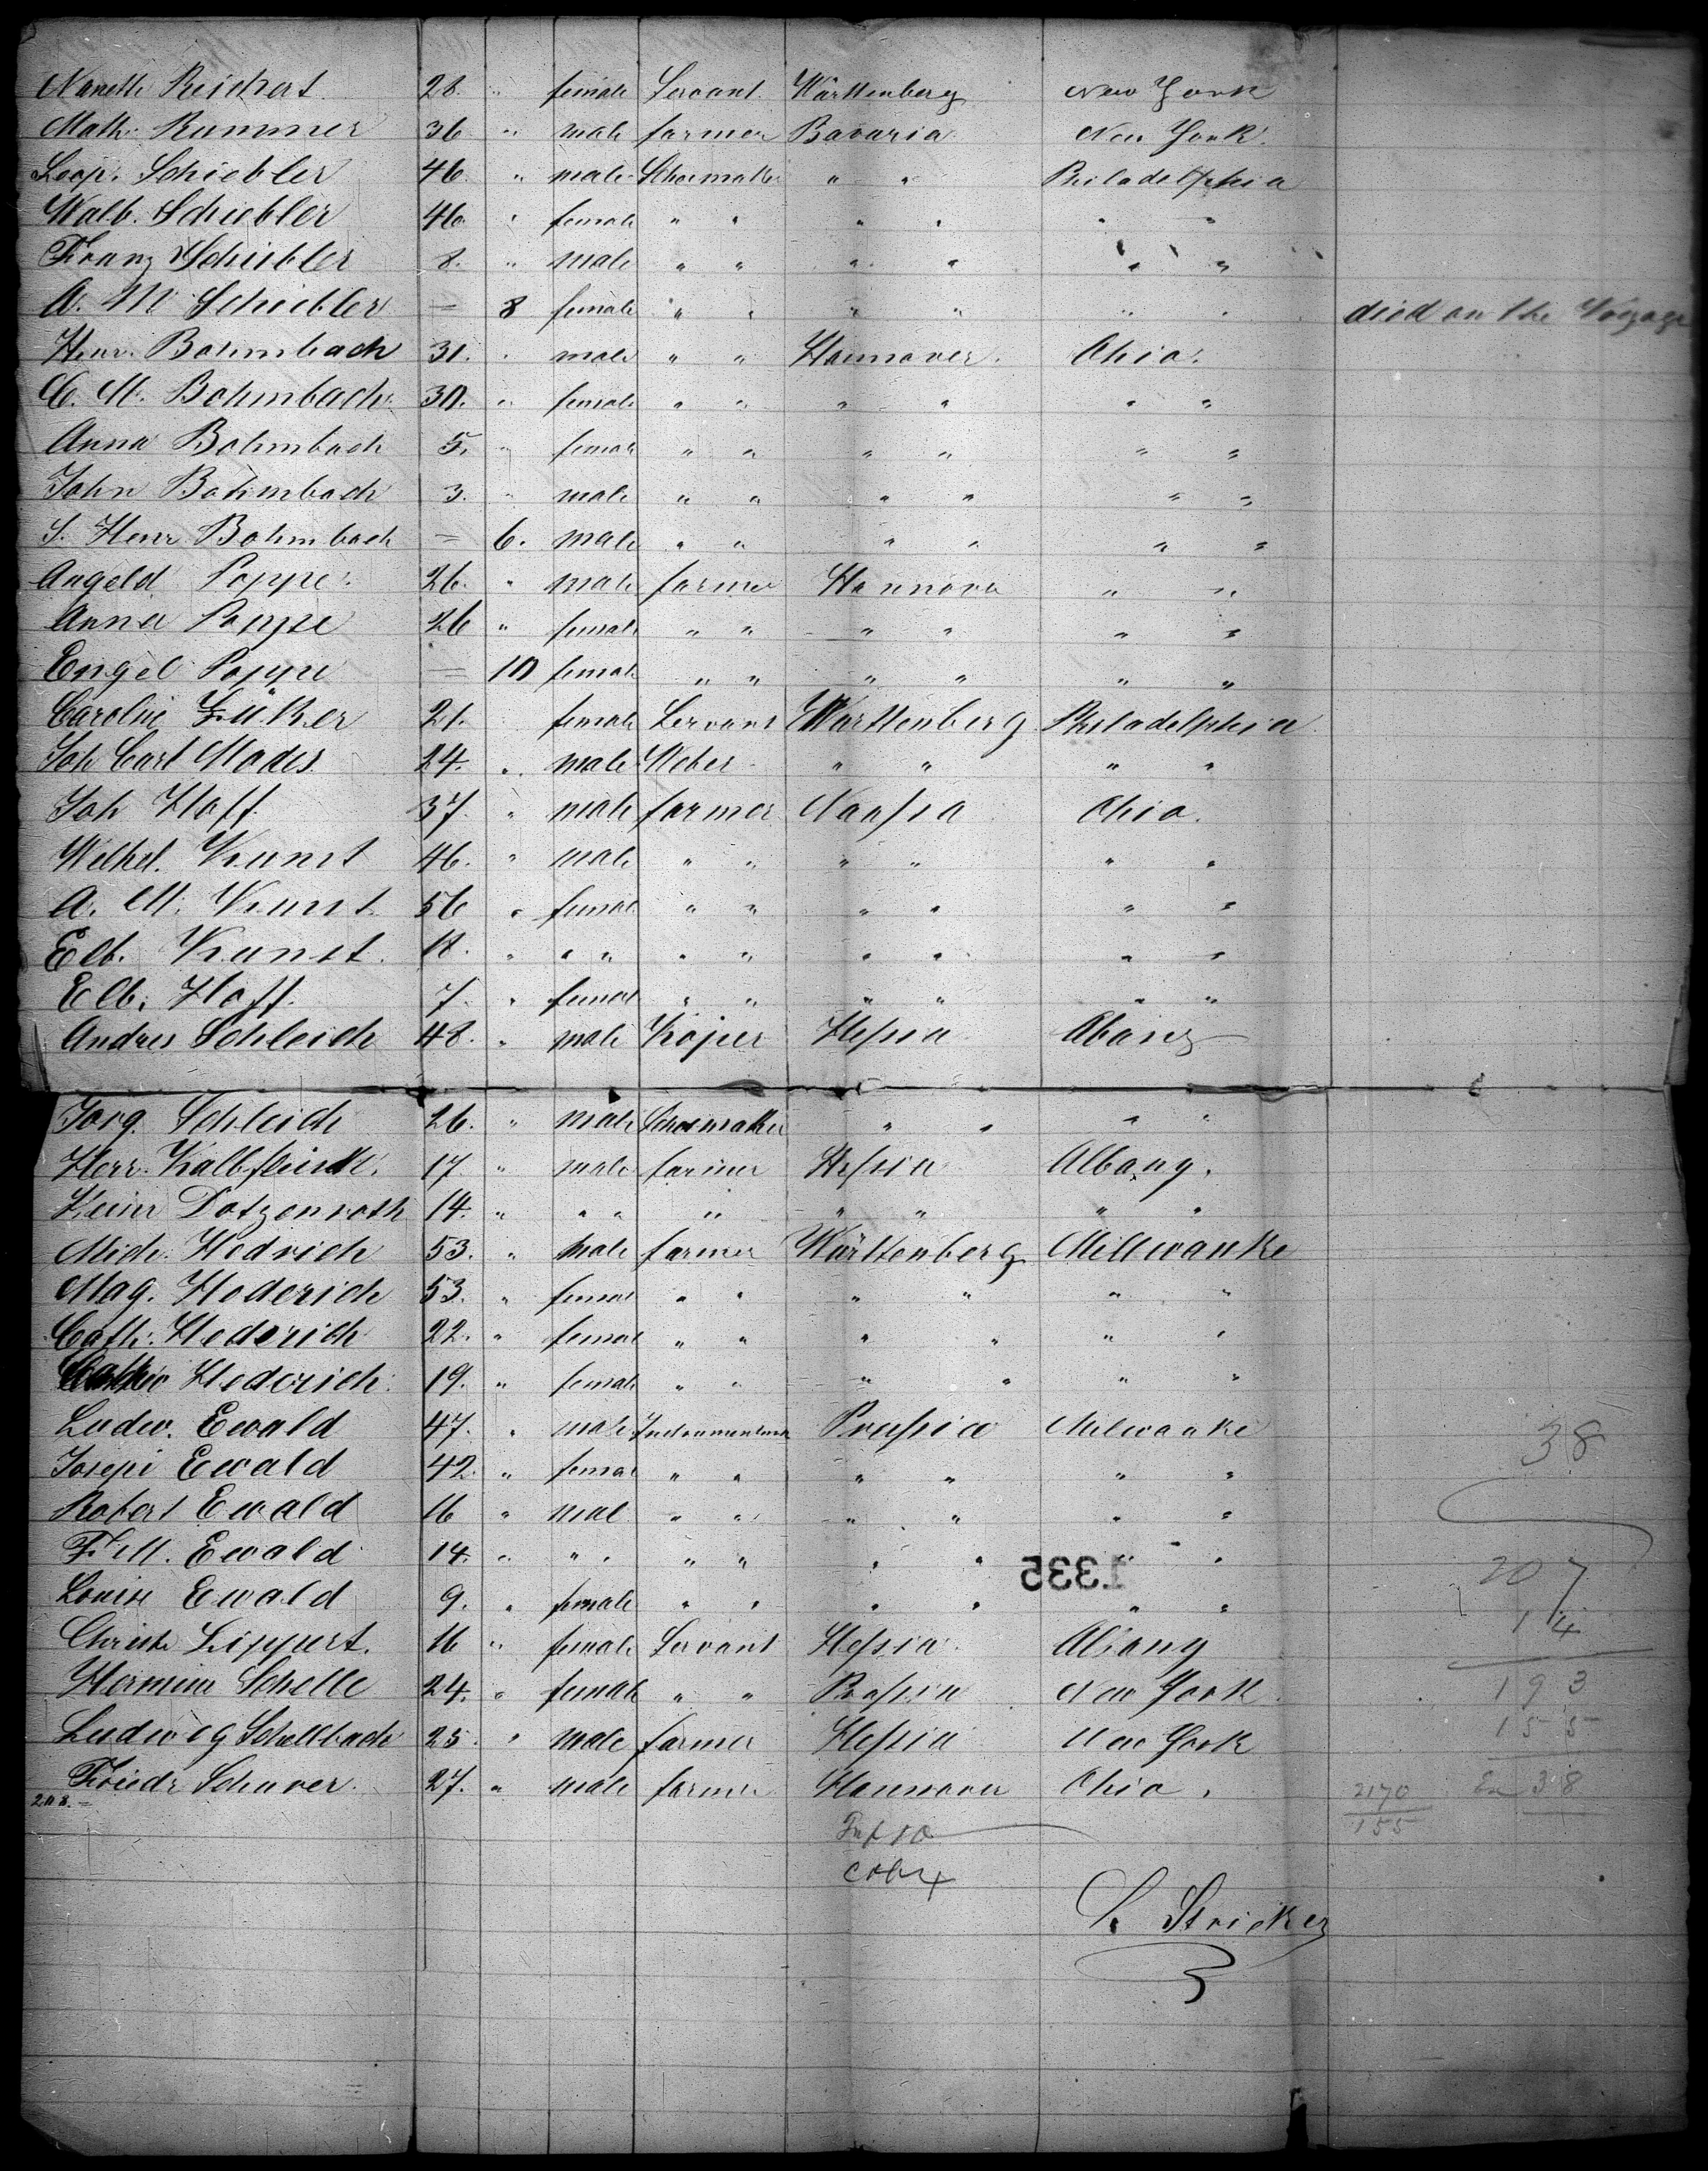 Nanette Reichert 28. " female Servant Württenberg New York
Math. Rummer 36 " male farmer Bavaria New York.
Leop. Schiebler 46. " male Shoemaker " " Philadelphia
Walb. Schiebler 46. " female " " " " " "
Franz Schiebler 8. " male " " " " " "
A. M Schiebler — 8 female " " " " " " died on the Voyage
Henr. Bohmbach 31. " male " " Hannover. Ohio.
C. M. Bohmbach 30. " female " " " " " "
Anna Bohmbach 5. " female " " " " " "
John Bohmbach 3. " male " " " " " "
J. Henr Bohmbach = 6. male " " " " " "
Angeld Poppe 26. " male farmer Hannover " "
Anna Poppe 26 " female " " " " " "
Engel Poppe — 10 female " " " " " "
Caroline 21. female Servant Württenberg Philadelphia
Joh Carl Mades 24. " male Weber " " " "
Joh Hoff. 37. " male farmer Ohio.
Wilhel. Kunst 46. " male " " " " " "
A. M. Kunst 56 " female " " " " " "
Elb. Kunst. 18. " " " " " " " " "
Elb. Hoff. 7. " femal " " " " " "
Andres Schleich 48. " male Hessia Abany
Jorg. Schleich 26. " male Schoemaker " " " "
Herr. Kalbfleisch. 17 " male farmer Hessia Albany.
Heinr Dotzenroth 14. " " " " " " " "
Mich. Hedrich 53. " male farmer Württenberg Millwauke
Mag. Hederich 53. " femal " " " " " "
Cath. Hederich 22. " femal " " " " " "
Hederich 19. " female " " " " " "
Ludw. Ewald 47. " male Prussia Milwauke
Josepi Ewald 42. " femal " " " " " "
38
Robert Ewald 16 " mal " " " " " "
F. M. Ewald 14. " " " " " " " " "
1335
207
Louise Ewald 9. " female " " " " " "
14
Christi Lippert. 16 " female Servant Hessia Albany
Hermine Schelle 24. " female " " Prussia New York
193
Ludwig Schellbach 25. " male farmer Hessia New York
155
Friedr Schaver. 27. " male farmer Hannover Ohio.
208. =
2170
155
38
Inf 10
L. Stricker